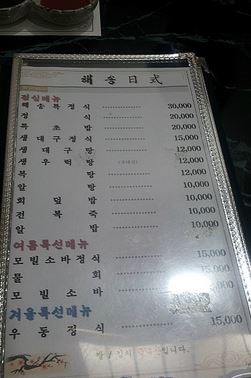 해송日式
점심메뉴
해송특정식 30,000
정식 20,000
특초밥 20,000
생대구정식 15,000
생대구탕 12,000
생우럭탕 12,000
복탕 12,000
알탕 10,000
회덮밥 10,000
전복죽 10,000
알밥 10,000
여름특선메뉴
모밀소바정식 15,000
물회 15,000
모밀소바
겨울특선메뉴
우동정식 15,000
쌀, 김치 입니다.